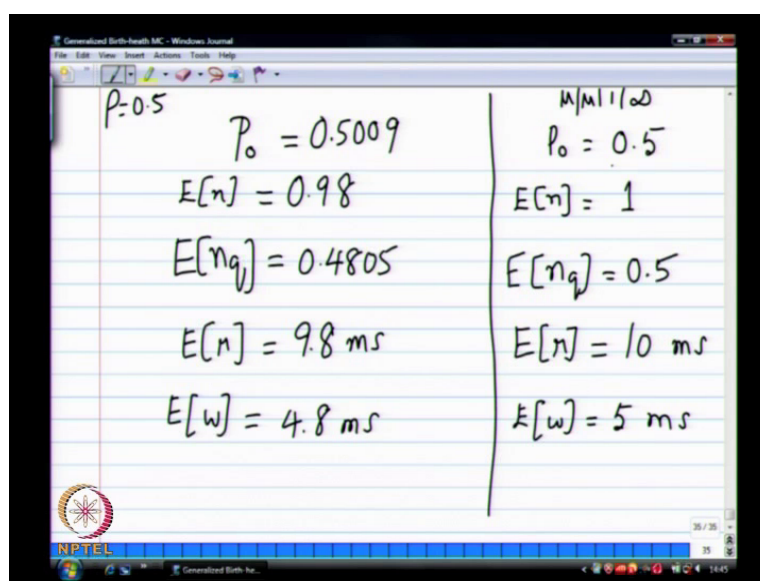 Generalized Birth-heath MC - Windows Journal
File Edit View Insert Actions Tools Help
ρ=0.5
P₀ = 0.5009
E[n] = 0.98
E[nq] = 0.4805
E[r] = 9.8 ms
E[w] = 4.8 ms
M/M/1/∞
P₀ = 0.5
E[n] = 1
E[nq] = 0.5
E[r] = 10 ms
E[w] = 5 ms
35 / 35
35
NPTEL
Generalized Birth-he...
14:45